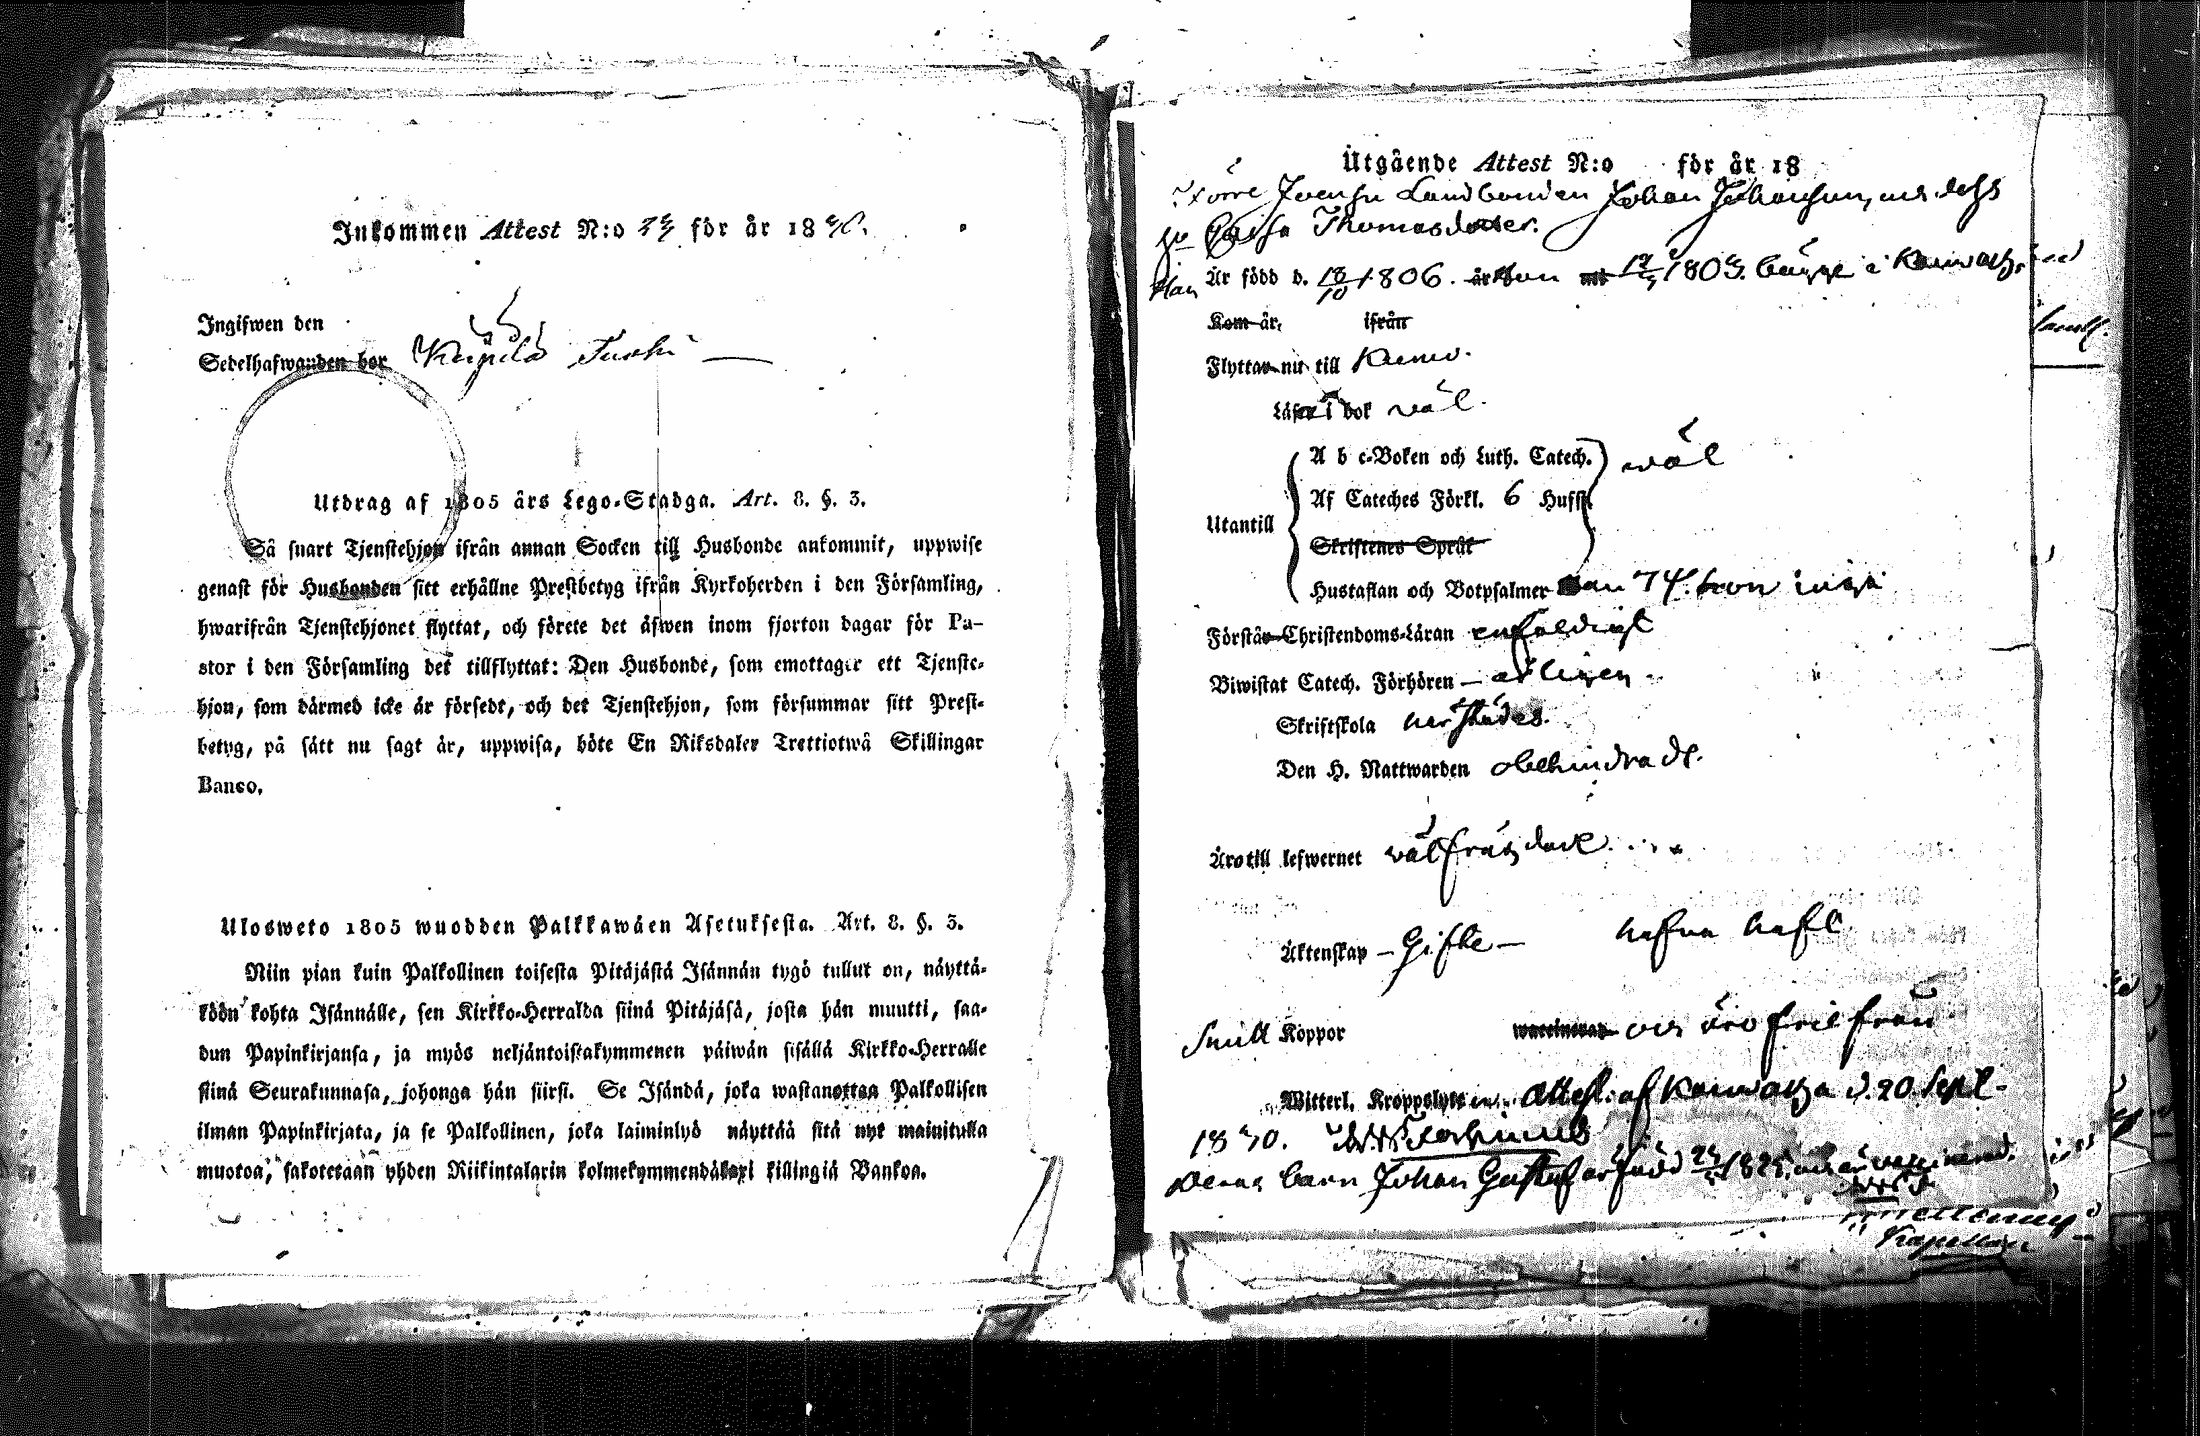 Inkommen Attest N:o 24 för år 1840.
Ingifwen den
Sedelhafwanden bor
Utdrag af 1805 års Lego-Stadga. Art. 8. §. 3.
Så snart Tjenstehjon ifrån annan Socken till Husbonde ankommit, uppwise
genast för Husbonden sitt erhållne Prestbetyg ifrån Kyrkoherden i den Församling,
hwarifrån Tjenstehjonet flyttat, och förete det äfwen inom fjorton dagar för Pa-
stor i den Församling det tillflyttat: Den Husbonde, som emottager ett Tjenste-
hjon, som därmed icke är försedt, och det Tjenstehjon, som försummar sitt Prest-
betyg, på sätt nu sagt är, uppwisa, böte En Riksdaler Trettiotwå Skillingar
Banco.
Ulosweto 1805 wuodden Palkkawäen Asetuksesta. Art. 8. §. 3.
Niin pian kuin Palkollinen toisesta Pitäjästä Isännän tygö tullut on, näyttä-
köön kohta Isännälle, sen Kirkko-Herralda siinä Pitäjäsä, josta hän muutti, saa-
dun Papinkirjansa, ja myös neljäntoistakymmenen päiwän sisällä Kirkko-Herralle
siinä Seurakunnasa, johonga hän siirsi. Se Isändä, joka wastanottaa Palkollisen
ilman Papinkirjata, ja se Palkollinen, joka laiminlyö näyttää sitä nyt mainitulla
muotoa, sakotetaan yhden Riikintalarin kolmekymmendäkaxi killingiä Bankoa.
Utgående Attest N:o för år 18
Landbonden Johan Johansson, och dess
Caisa Thomasdotter.
Han Är född d. 18/10 1806. är hon 1803. bägge i
Kom år, ifrån
Flyttar nu till Kumo.
Läser i bok väl.
A b c-Boken och Luth. Catech. wäl
Af Cateches Förkl. 6 Hufst.
Utantill
Skriftenes Språk
Hustaflan och Botpsalmer han 74. hon inga
Förstår Christendoms-Läran enfaldigt
Biwistat Catech. Förhören — årligen
Skriftskola härstädes.
Den H. Nattwarden obehindradt.
Äro till lefwernet välfrägdade.
Äktenskap — Gifte — hafva haft
Smitt Koppor vaccinerad och äro frie från
Witterl. Kroppslyte Attest. af d. 20 Sept.
1840.
Deras barn Johan Gustaf är född 1825, och är vaccinerad.
Kapellan